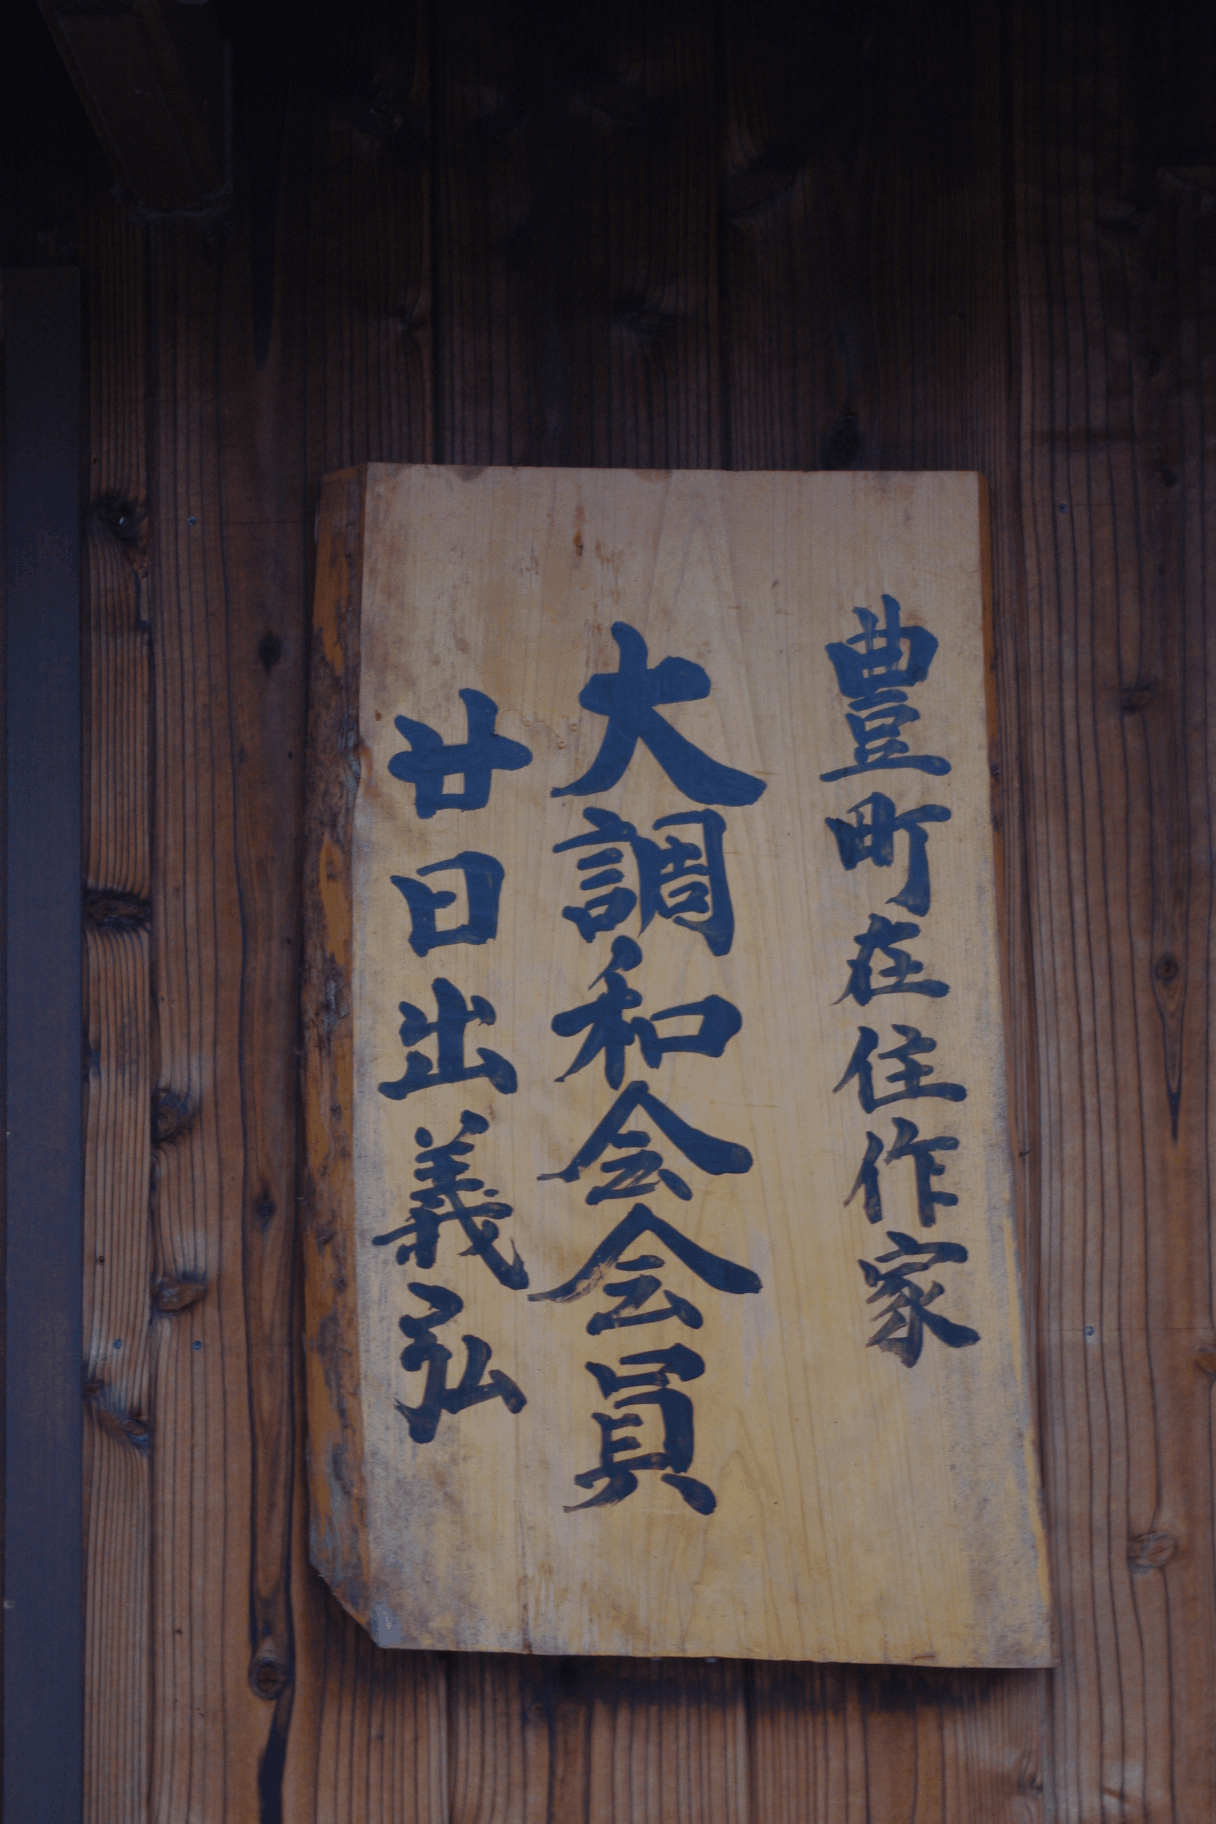 豊町在住作家
大調和会会員
廿日出義弘